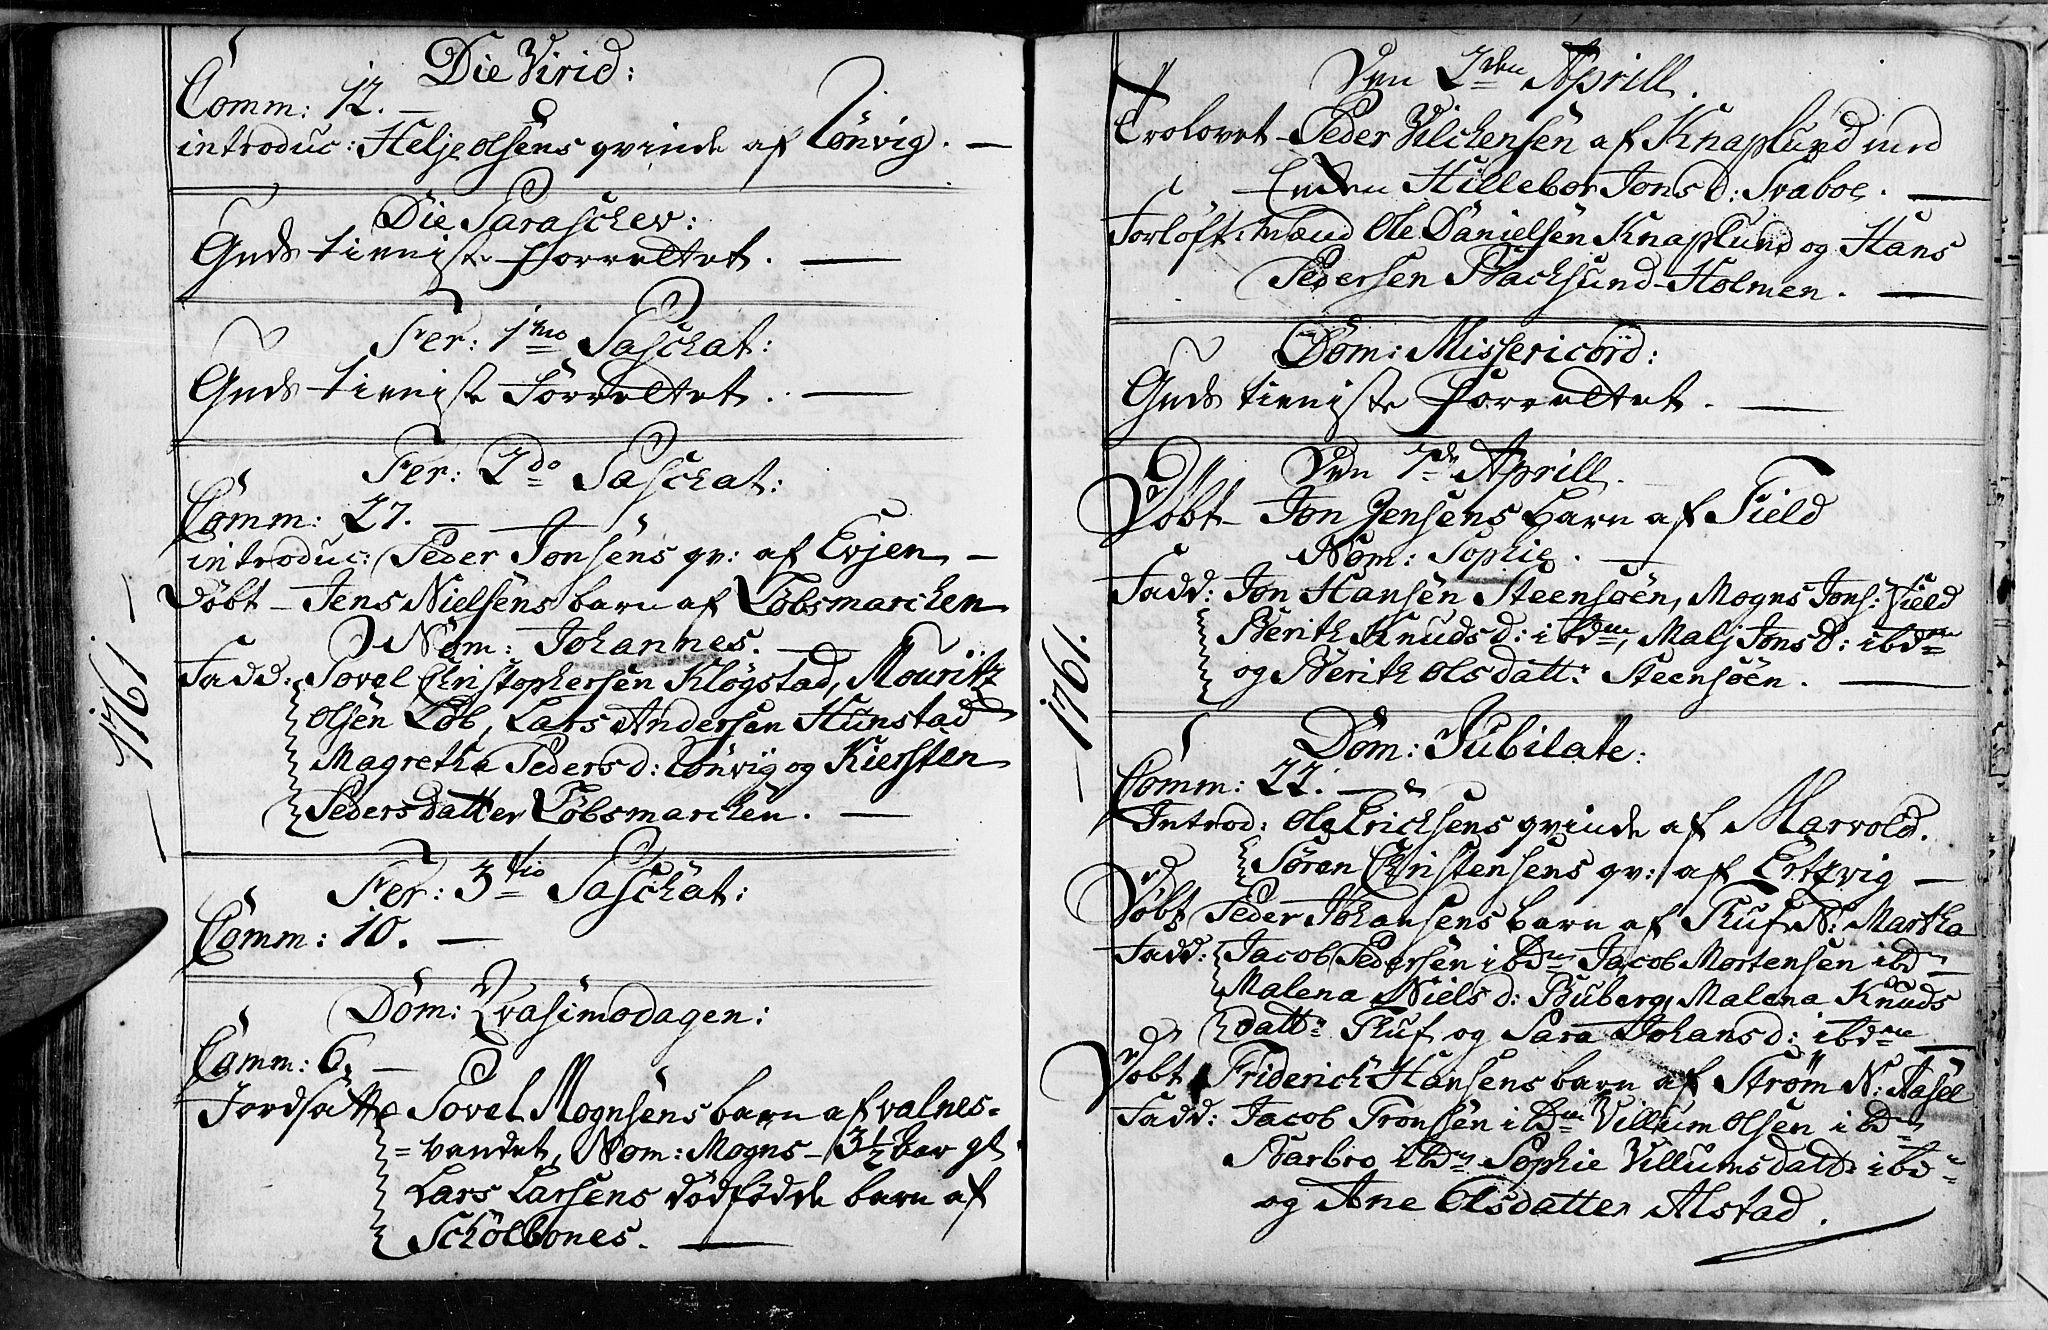 Die Virid:
Comm: 12. —
introduc: Helje olsens qvinde af Lönvig. —
Die Paraschev:
Guds tieniste forrettet. —
Fer: 1mo Paschat:
Guds tieniste Forrettet. —
Fer: 2do Paschat:
Comm: 27. —
introduc: Peder Jonsens qv: af Evjen —
Döbt — Jens Nielsens barn af Löbsmarchen
Nom: Johannes. —
Fadd: Povel Christophersen Klögstad, Mouritz
olsen Löb, Lars Andersen Hunstad
Magretha Pedersd: Lönvig og Kiersten
Pedersdatter Löbsmarchen. —
Fer: 3tio Paschat:
Comm: 10. —
Dom: Qvasimodagen:
Comm: 6. —
Jordsatte Povel Mognsens barn af valnes-
=vandet, Nom: Mogns — 3½ aar gl
Lars Larsens dödfödde barn af
Schölbones. —
— 1761 —
Den 2den Aprill.
Trolovet — Peder Vilchensen af Knaplund med
Enken Hillebor Jonsd: Svaboe. —
Forlöft. mænd Ole Danielsen Knaplund og Hans
Pedersen Backsund-Holmen. —
Dom: Missericord:
Guds tieniste forrettet. —
Den 7de Aprill.
Döbt — Jon Jensens barn af Field
Nom: Sophie. —
Fadd: Jon Hansen Steensöen, Mogns Jons: Field
Berith Knudsd: ibdm, Malj Jonsd: ibdm
og Berith olsdatt: Steensöen. —
Dom: Jubilate:
Comm: 22. —
Introd: Ole Erichsens qvinde af Marvold.
Sören Christensens qv: af Ertzvig —
Döbt Peder Johansens barn af Tuf N: Martha
Fadd: Jacob Pedersen ibdm Jacob Mortensen ibd—
Malena Nielsd: Buberg, Malena Knuds
datt: Tuf og Sara Johansd: ibdm —
Döbt Friderich Hansens barn af Ström N: Aasel
Fadd: Jacob Tronsen ibdm Villum Olsen ibdm
Barbro ibdm Sophie Villumsdatt: ibdm
og Ane Olsdatter Alstad.
— 1761. —